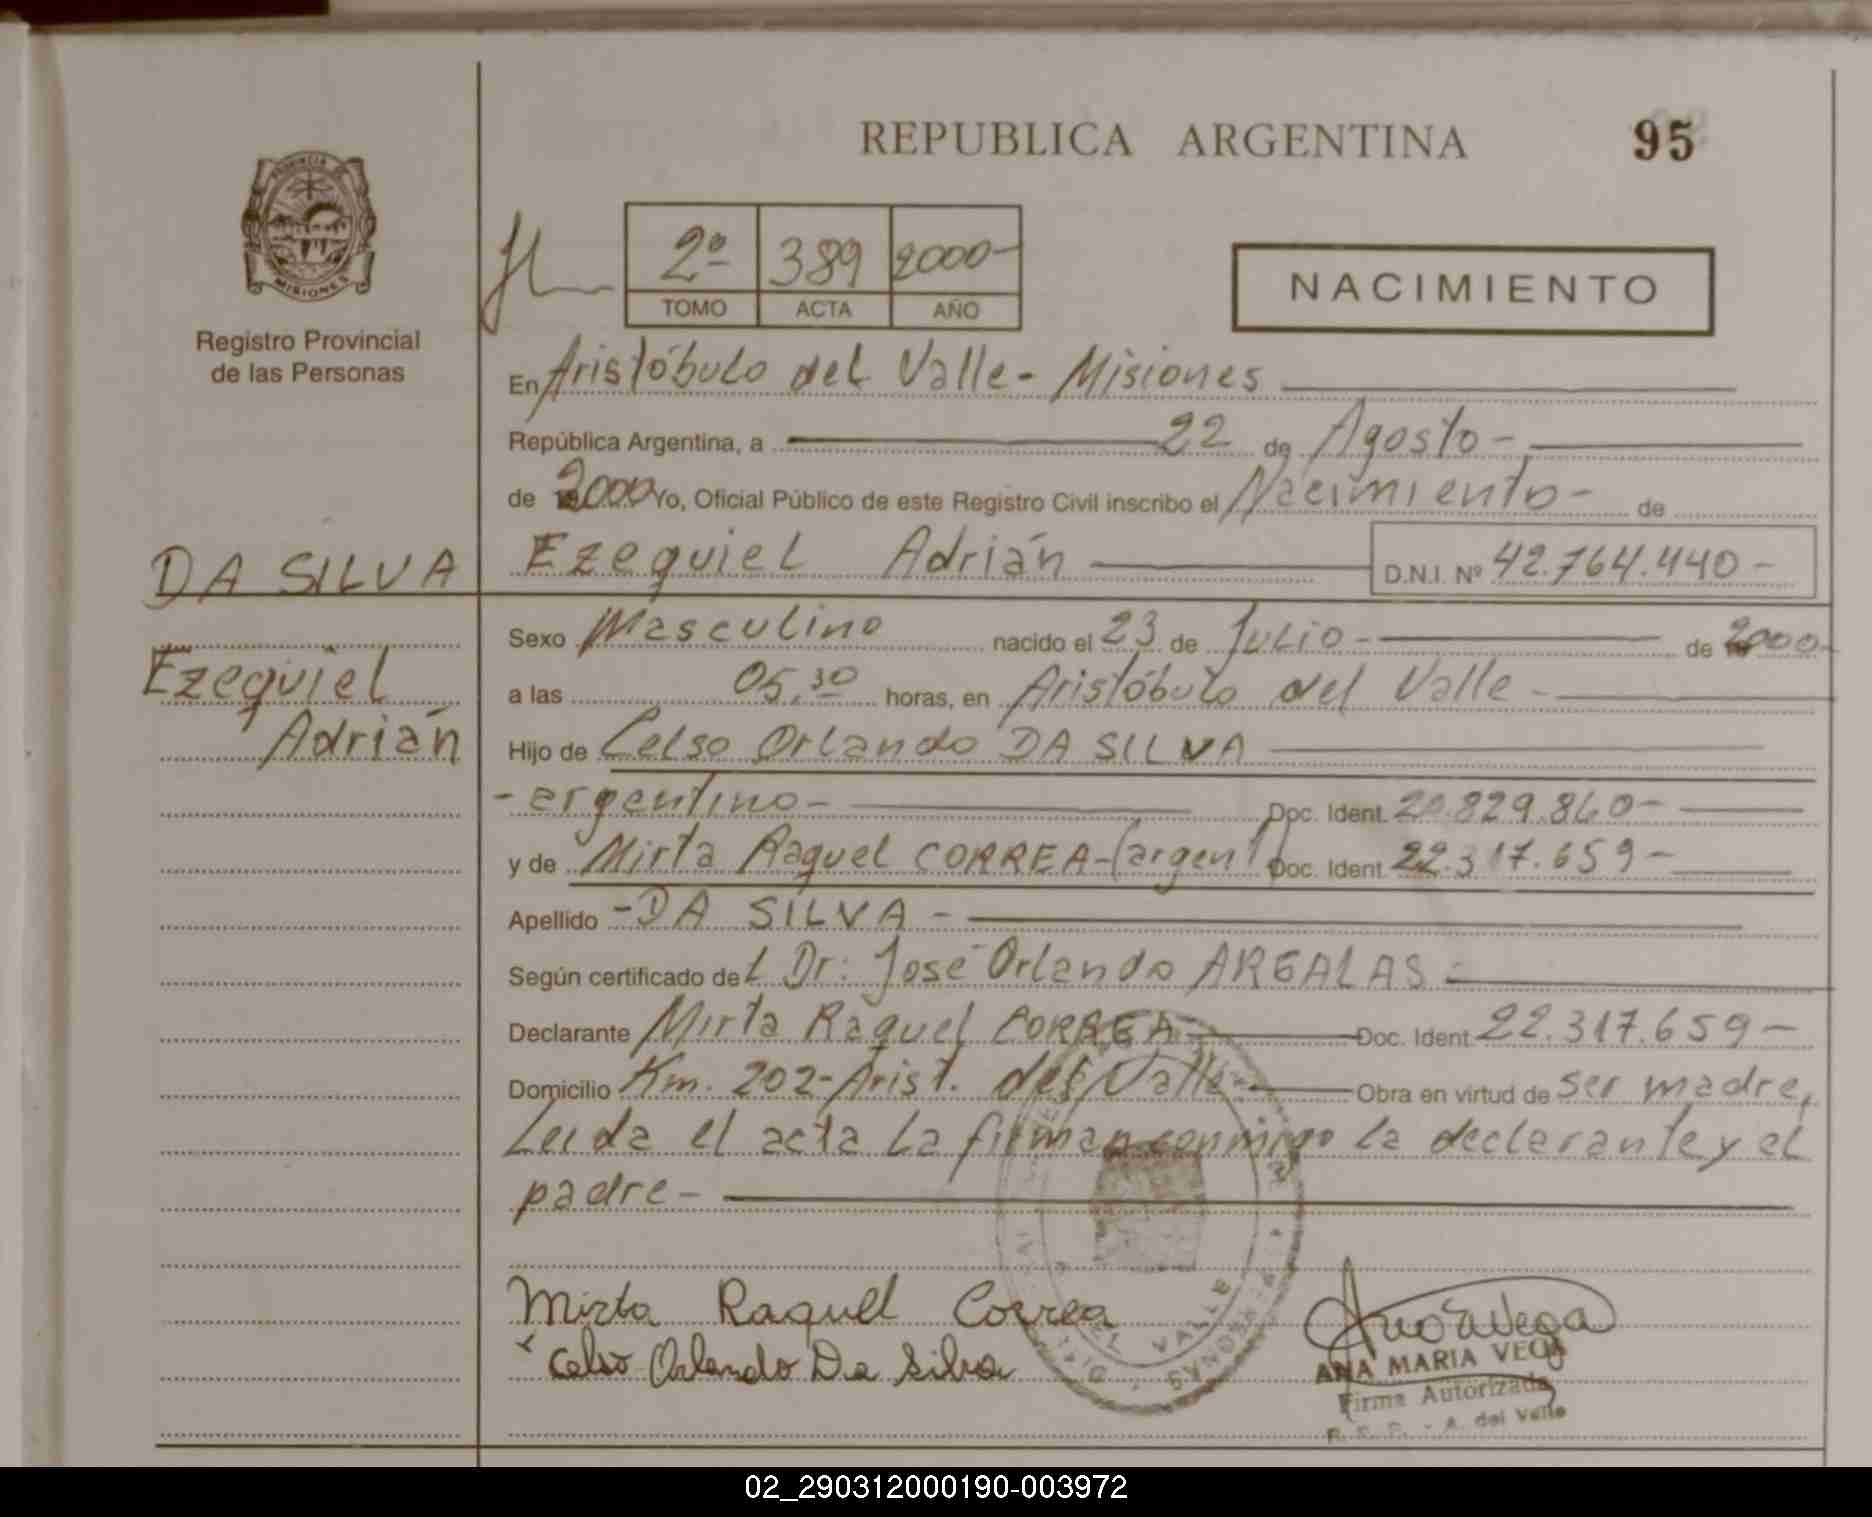 REPUBLICA ARGENTINA
95
PROVINCIA DE
MISIONES
Registro Provincial
de las Personas
2º 389 2000-
TOMO ACTA AÑO
NACIMIENTO
En Aristóbulo del Valle- Misiones
República Argentina, a 22 de Agosto-
de 2000 Yo, Oficial Público de este Registro Civil inscribo el Nacimiento- de
DA SILVA
Ezequiel Adrián D.N.I. Nº 42.764.440-
Sexo Masculino nacido el 23 de Julio- de 2000-
Ezequiel
a las 05,30 horas, en Aristóbulo del Valle-
Adrián
Hijo de Celso Orlando DA SILVA
-argentino- Doc. Ident. .829.860-
y de Mirta Raquel CORREA-(argent) Doc. Ident. 22.317.659-
Apellido -DA SILVA-
Según certificado del Dr: José Orlando
Declarante Mirta Raquel CORREA- Doc. Ident 22.317.659-
Domicilio Km. 202-Arist. del Valle- Obra en virtud de ser madre,
Leída el acta la firman conmigo la declarante y el
padre-
Mirta Raquel Correa
Celso Orlando Da Silva
EL VALLE
ANA MARIA VEGA
Firma Autorizada
A. del Valle
02_290312000190-003972